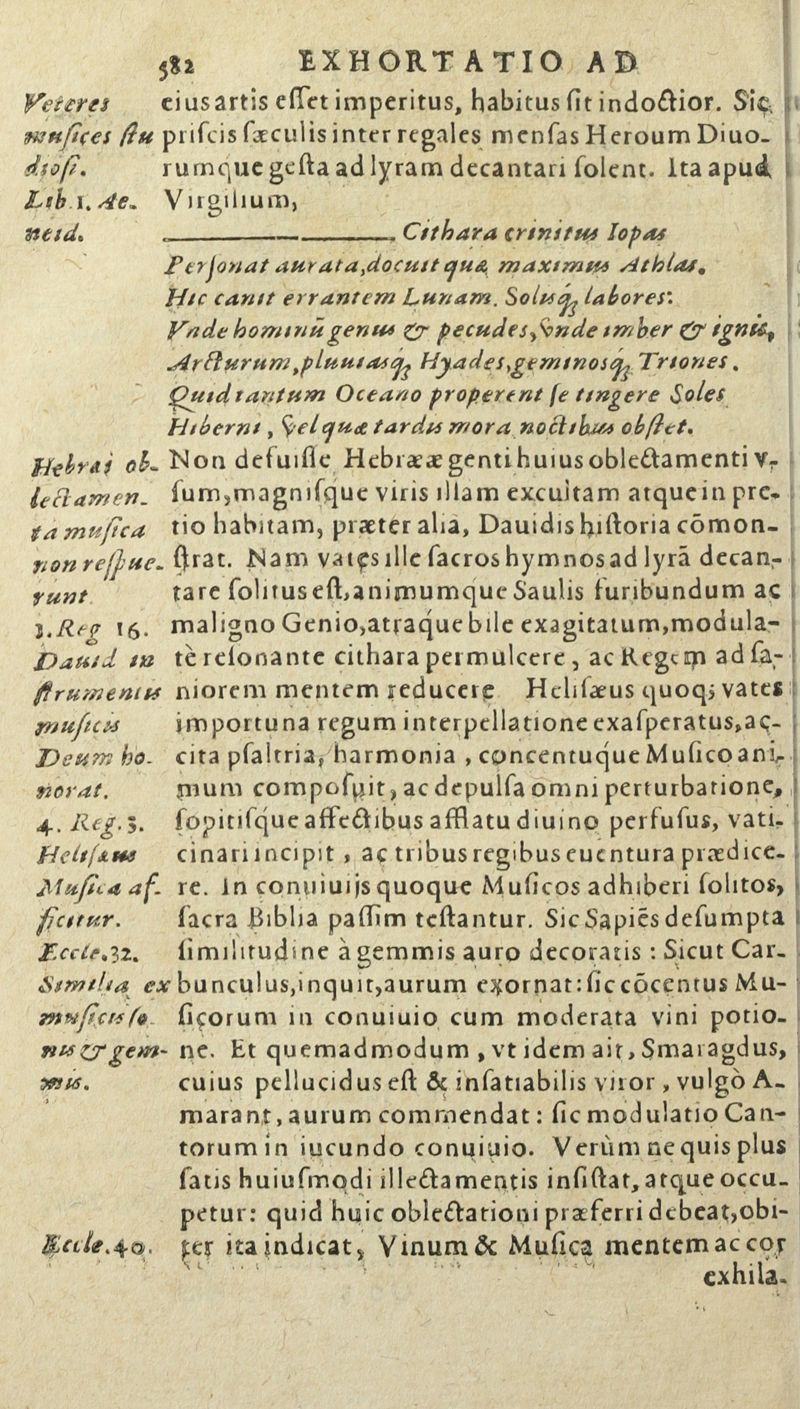 582 EXHORTATIO AD
Veteres eius artis eſſet imperitus, habitus ſit indoctior. Sic
muſices ſtu priſcis ſæculis inter regales menſas Heroum Diuo-
dioſi. rumque geſta ad lyram decantari ſolent. Ita apud
Lib. 1. Ae- Virgilium,
neid. Cithara crinitus Iopas
Perſonat aurata, docuit quæ maximus Athlas.
Hic canit errantem Lunam. Soluſq; labores:
Vnde hominũ genus & pecudes, vnde imber & ignis,
Arcturum, pluuiaſq; Hyades, geminoſq; Triones.
Quid tantum Oceano properent ſe tingere Soles
Hiberni, vel quæ tardis mora noctibus obſtet.
Hebræi ob- Non defuiſſe Hebrææ genti huius oblectamenti v-
lectamen- ſum, magniſque viris illam excultam atque in pre-
ta muſica tio habitam, præter alia, Dauidis hiſtoria cõmon-
non reſpue- ſtrat. Nam vates ille ſacros hymnos ad lyrã decan-
runt tare ſolitus eſt, animumque Saulis furibundum ac
1. Reg 16. maligno Genio, atraque bile exagitatum, modula-
Dauid in tè reſonante cithara permulcere, ac Regem ad ſa-
ſtrumentis niorem mentem reducere Heliſæus quoq; vates
muſicis importuna regum interpellatione exaſperatus, ac-
Deum ho- cita pſaltria, harmonia, concentuque Muſico ani-
norat. mum compoſuit, ac depulſa omni perturbatione,
4. Reg. 3. ſopitiſque affectibus afflatu diuino perfuſus, vati-
Heliſæus cinari incipit, ac tribus regibus euentura prædice-
Muſica af- re. In conuiuijs quoque Muſicos adhiberi ſolitos,
ficitur. ſacra Biblia paſſim teſtantur. Sic Sapiẽs deſumpta
Eccle. 32. ſimilitudine à gemmis auro decoratis: Sicut Car-
Similia ex bunculus, inquit, aurum exornat: ſic cõcentus Mu-
muſicis ſo- ſicorum in conuiuio cum moderata vini potio-
nis & gem- ne. Et quemadmodum, vt idem ait, Smaragdus,
mis. cuius pellucidus eſt & inſatiabilis viror, vulgò A-
marant, aurum commendat: ſic modulatio Can-
torum in iucundo conuiuio. Verùm ne quis plus
ſatis huiuſmodi illectamentis inſiſtat, atque occu-
petur: quid huic oblectationi præferri debeat, obi-
Eccle. 40. ter ita indicat, Vinum & Muſica mentem ac cor
exhila-